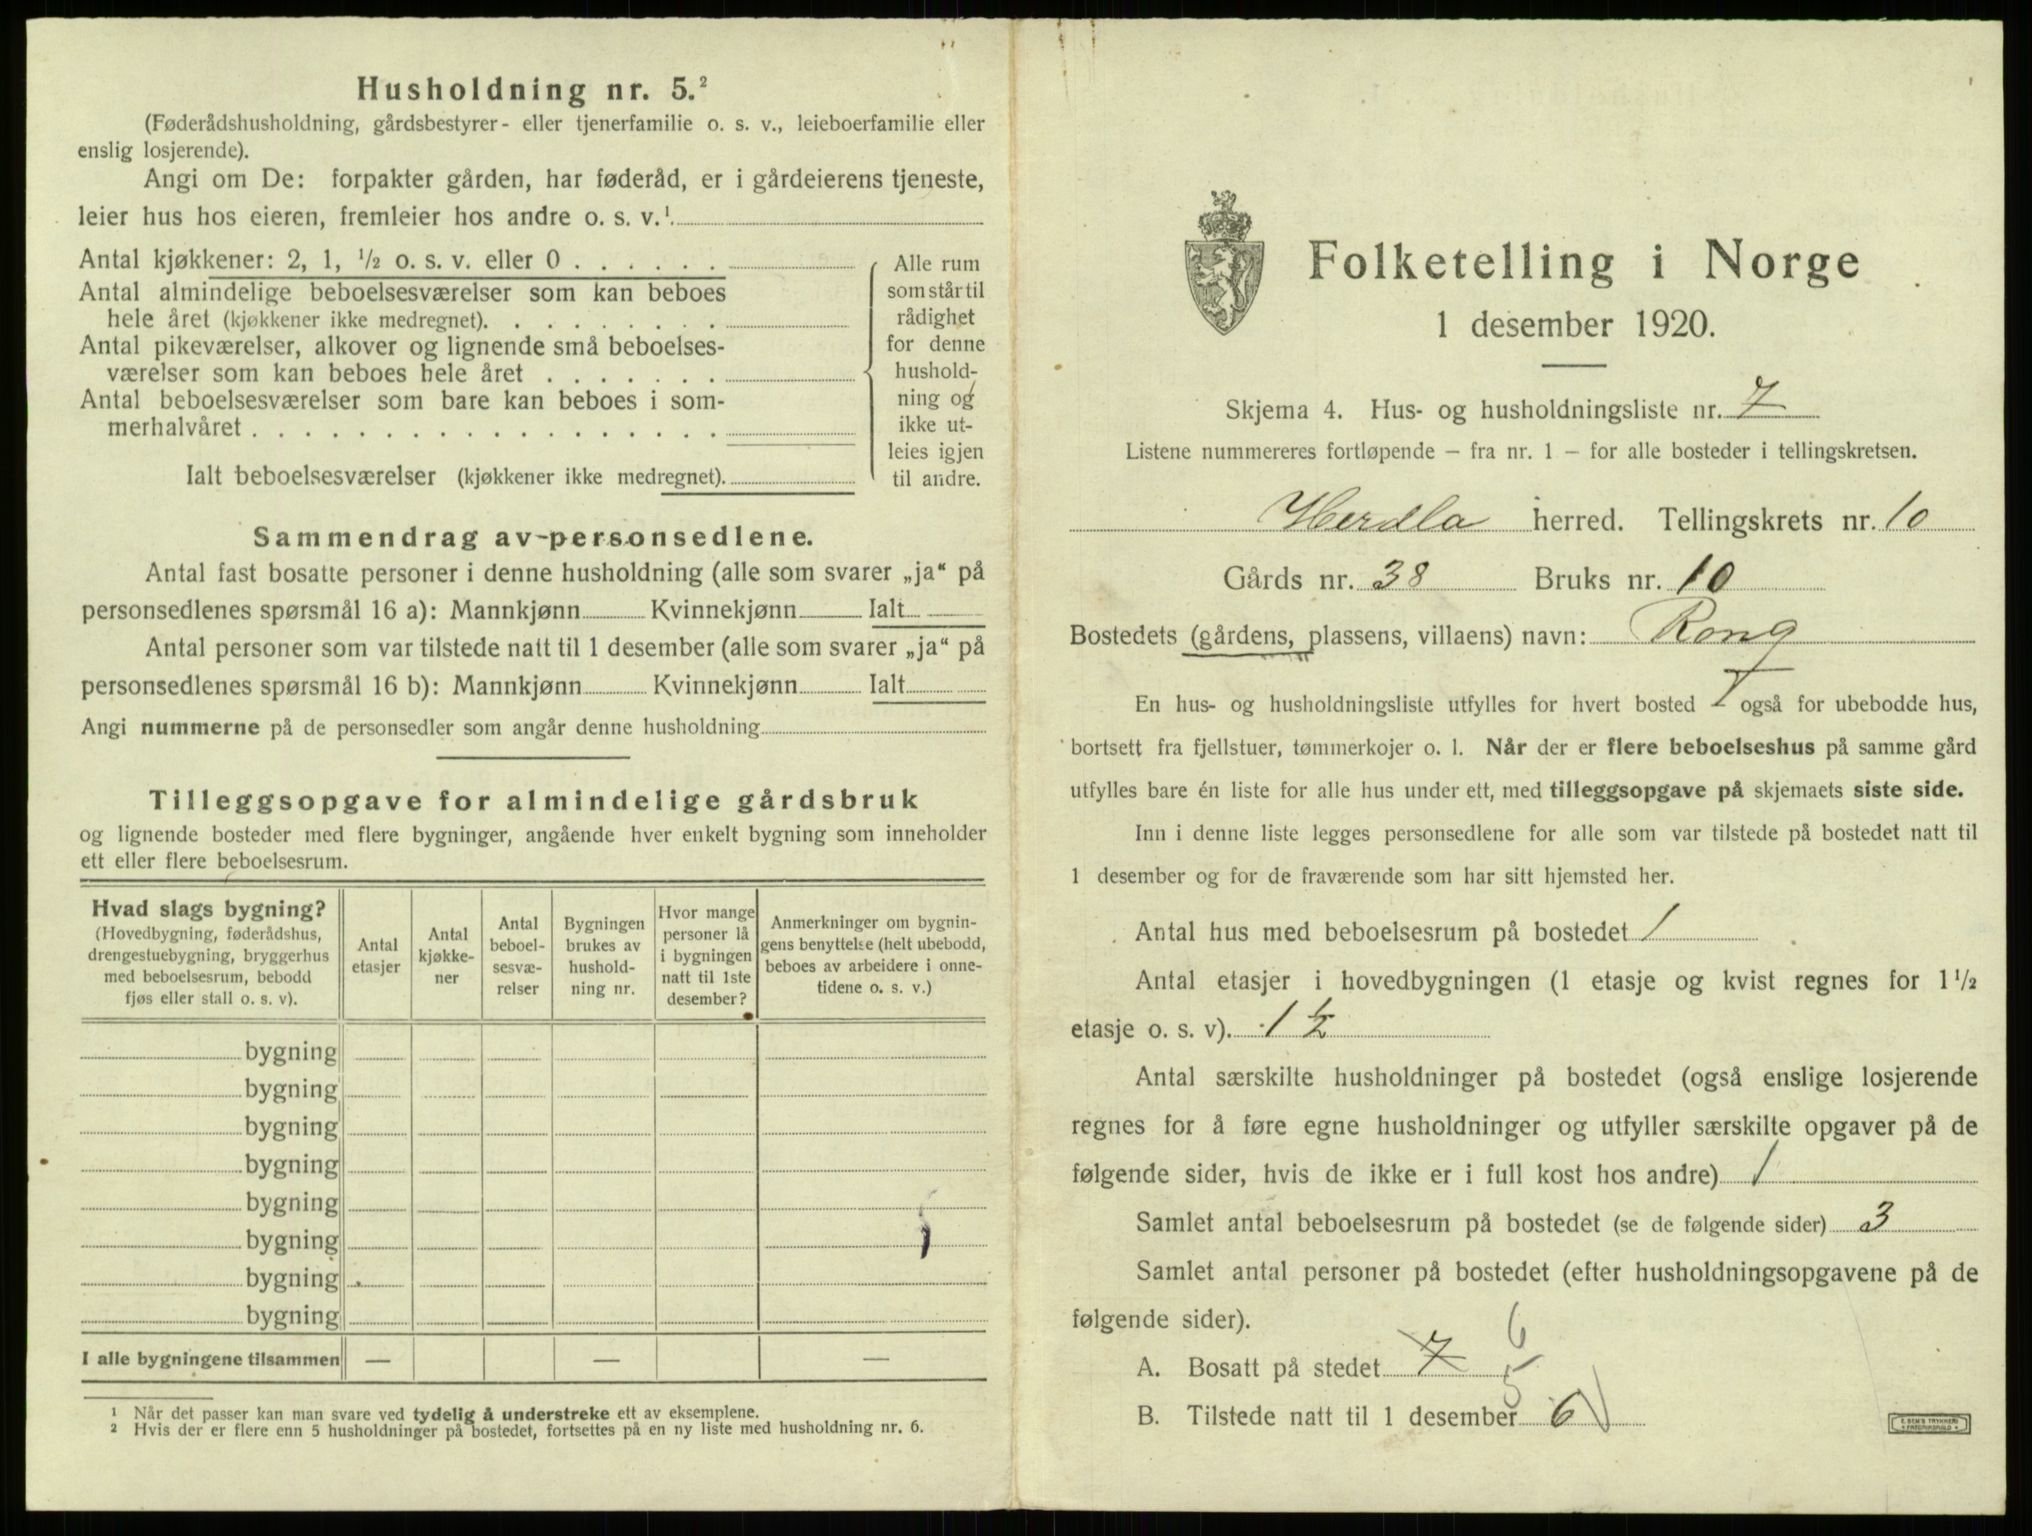 Husholdning nr. 5.²
(Føderådshusholdning, gårdsbestyrer- eller tjenerfamilie o. s. v., leieboerfamilie eller
enslig losjerende).
Angi om De: forpakter gården, har føderåd, er i gårdeierens tjeneste,
leier hus hos eieren, fremleier hos andre o. s. v.¹
Antal kjøkkener: 2, 1, ½ o. s. v. eller 0 . . . . . .
Antal almindelige beboelsesværelser som kan beboes
hele året (kjøkkener ikke medregnet). . . . . . . . .
Antal pikeværelser, alkover og lignende små beboelses-
værelser som kan beboes hele året . . . . . . .
Antal beboelsesværelser som bare kan beboes i som-
merhalvåret . . . . . . . . . . . . . . . . . .
Ialt beboelsesværelser (kjøkkener ikke medregnet).
Alle rum
som står til
rådighet
for denne
hushold-
ning og
ikke ut-
leies igjen
til andre.
Sammendrag av personsedlene.
Antal fast bosatte personer i denne husholdning (alle som svarer „ja“ på
personsedlenes spørsmål 16 a): Mannkjønn Kvinnekjønn Ialt
Antal personer som var tilstede natt til 1 desember (alle som svarer „ja“ på
personsedlenes spørsmål 16 b): Mannkjønn Kvinnekjønn Ialt
Angi nummerne på de personsedler som angår denne husholdning
Tilleggsopgave for almindelige gårdsbruk
og lignende bosteder med flere bygninger, angående hver enkelt bygning som inneholder
ett eller flere beboelsesrum.
Hvad slags bygning?
(Hovedbygning, føderådshus,
drengestuebygning, bryggerhus
med beboelsesrum, bebodd
fjøs eller stall o. s. v).
Antal
etasjer
Antal
kjøkke-
ner
Antal
beboel-
sesvæ-
relser
Bygningen
brukes av
hushold-
ning nr.
Hvor mange
personer lå
i bygningen
natt til 1ste
desember?
Anmerkninger om bygnin-
gens benyttelse (helt ubebodd,
beboes av arbeidere i onne-
tidene o. s. v.)
bygning
bygning
bygning
bygning
bygning
bygning
bygning
bygning
I alle bygningene tilsammen — — —
¹ Når det passer kan man svare ved tydelig å understreke ett av eksemplene.
² Hvis der er flere enn 5 husholdninger på bostedet, fortsettes på en ny liste med husholdning nr. 6.
Folketelling i Norge
1 desember 1920.
Skjema 4. Hus- og husholdningsliste nr. 7
Listene nummereres fortløpende – fra nr. 1 – for alle bosteder i tellingskretsen.
Herdla herred. Tellingskrets nr. 10
Gårds nr. 38 Bruks nr. 10
Bostedets (gårdens, plassens, villaens) navn: Rong
En hus- og husholdningsliste utfylles for hvert bosted også for ubebodde hus,
bortsett fra fjellstuer, tømmerkojer o. l. Når der er flere beboelseshus på samme gård
utfylles bare én liste for alle hus under ett, med tilleggsopgave på skjemaets siste side.
Inn i denne liste legges personsedlene for alle som var tilstede på bostedet natt til
1 desember og for de fraværende som har sitt hjemsted her.
Antal hus med beboelsesrum på bostedet 1
Antal etasjer i hovedbygningen (1 etasje og kvist regnes for 1½
etasje o. s. v). 1½
Antal særskilte husholdninger på bostedet (også enslige losjerende
regnes for å føre egne husholdninger og utfyller særskilte opgaver på de
følgende sider, hvis de ikke er i full kost hos andre) 1
Samlet antal beboelsesrum på bostedet (se de følgende sider) 3
Samlet antal personer på bostedet (efter husholdningsopgavene på de
følgende sider).
A. Bosatt på stedet 7 6
B. Tilstede natt til 1 desember 5 6
E. SEM'S TRYKKERI
FREDRIKSHALD